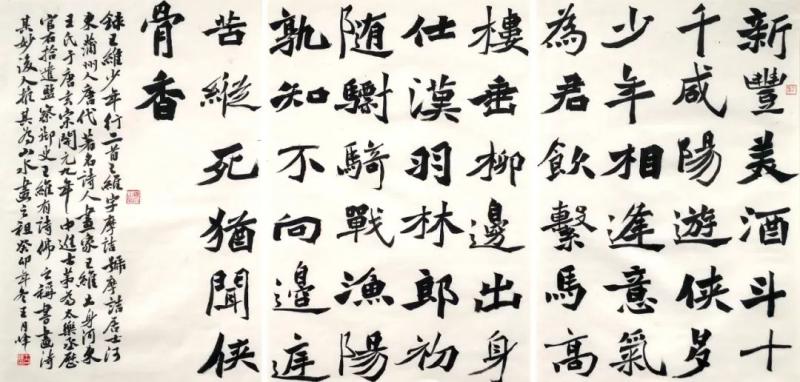 新豐美酒斗十
千咸陽遊俠多
少年相逢意氣
為君飲繫馬高
樓垂柳邊出身
仕漢羽林郎初
随驃騎戰漁陽
孰知不向邊庭
苦縱死猶聞俠
骨香
録王維少年行二首王維字摩詰號摩詰居士河
東蒲州人唐代著名詩人畫家王維出身河東
王氏于唐玄宗開元九年中進士第為太樂丞歷
官右拾遺監察御史王維有詩佛之稱書畫詩
其妙後人推其為山水畫之祖癸卯年冬王月峰